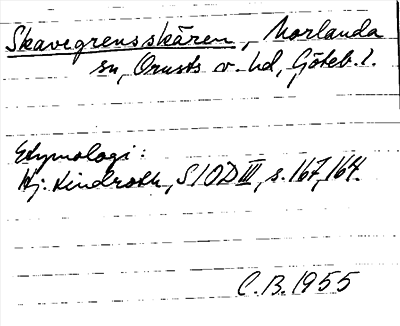 Skavegrensskären, Morlanda
sn, Orusts v. hd, Göteb. l.
Etymologi:
Hj. Lindroth, SIOD III, s. 167, 164.
C.B. 1955